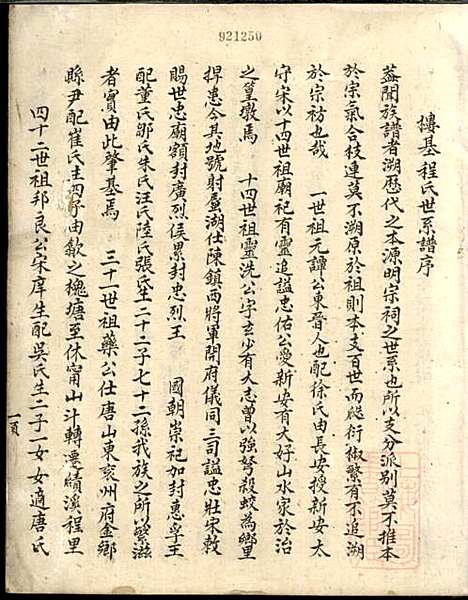 921250
樓基程氏世系譜序
蓋聞族譜者溯歷代之本源明宗祠之世系也所以支分派別莫不推本
於宗氣合枝連莫不溯原於祖則本支百世而縱衍椒繁有不追溯
於宗祊也哉 一世祖元譚公東晉人也配徐氏由長安授新安太
守宋以十四世祖廟祀有靈追謚忠佑公愛新安有大好山水家於治
之皇墩焉 十四世祖靈洗公字玄少有大志曾以強弩殺蛟為鄉里
捍患今其地號射蜃湖仕陳鎮西將軍開府儀同三司謚忠壯宋敕
賜世忠廟額封廣烈侯累封忠烈王 國朝崇祀加封惠孚王
配董氏鄒氏朱氏汪氏陸氏張氏生二十二子七十二孫我族之所以繁滋
者實由此肇基焉 三十一世祖藥公仕唐山東兗州府金鄉
縣尹配崔氏生四子由歙之槐塘至休甯山斗轉遷績溪程里
四十二世祖邦良公宋庠生配吳氏生二子一女女適唐氏
一頁